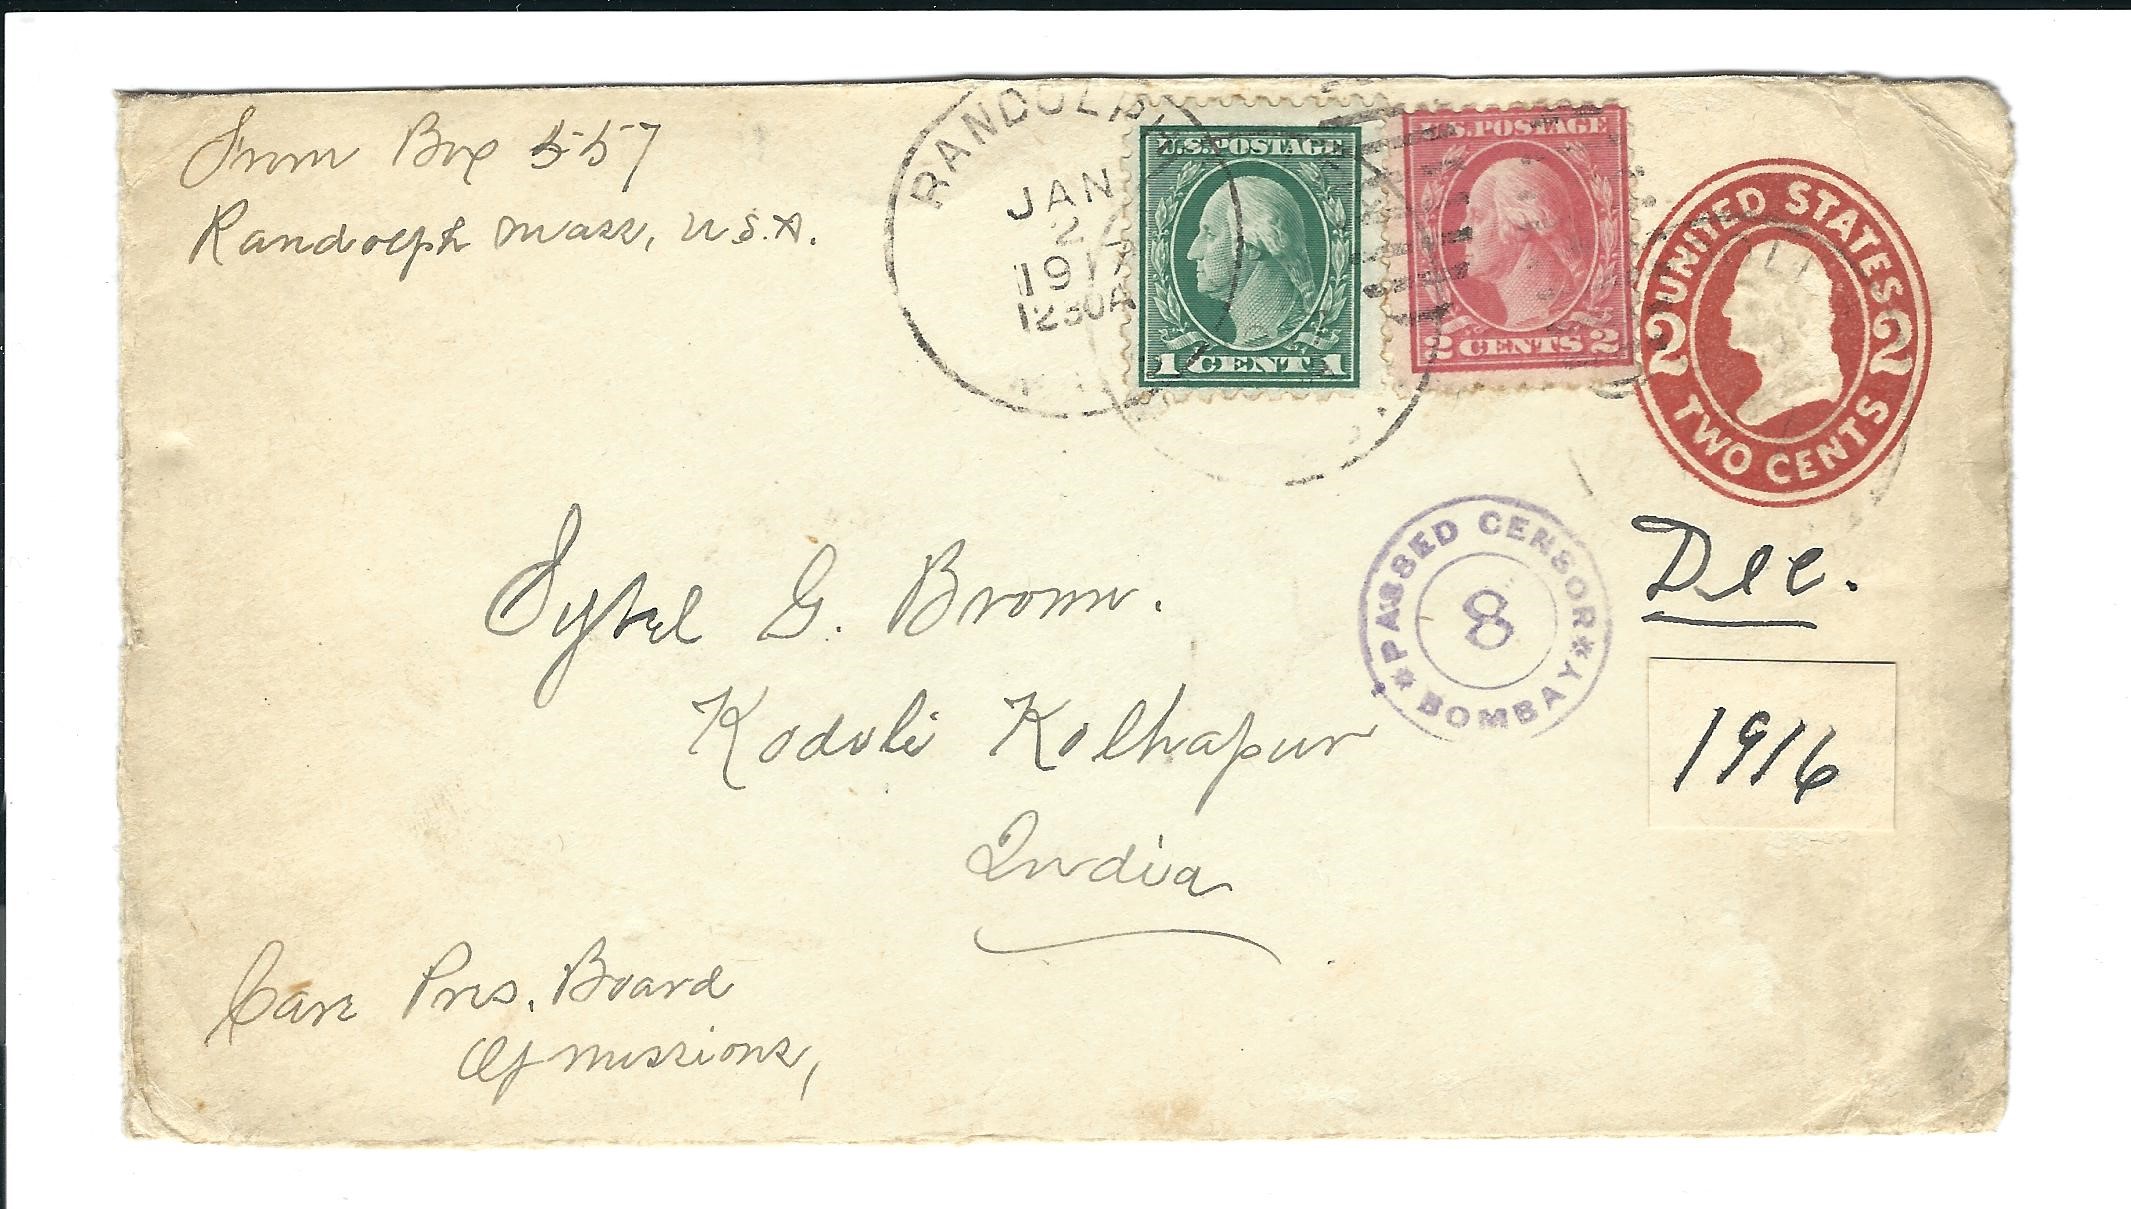 From Box 557
Randolph Mass, U.S.A.
RANDOLPH
JAN
2
191
1230A
U.S.POSTAGE
1 CENT 1
U.S.POSTAGE
2 CENTS 2
UNITED STATES
2 2
TWO CENTS
PASSED CENSOR
8
* BOMBAY *
Dec.
1916
Sybel G. Brown.
Kodoli Kolhapur
India
Care Pres. Board
Of Missions,